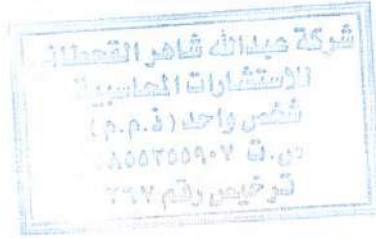 شركة عبدالله شاهر القحطاني
للاستشارات المحاسبية
شخص واحد (ذ.م.م)
س.ت
ترخيص رقم ٢٩٧